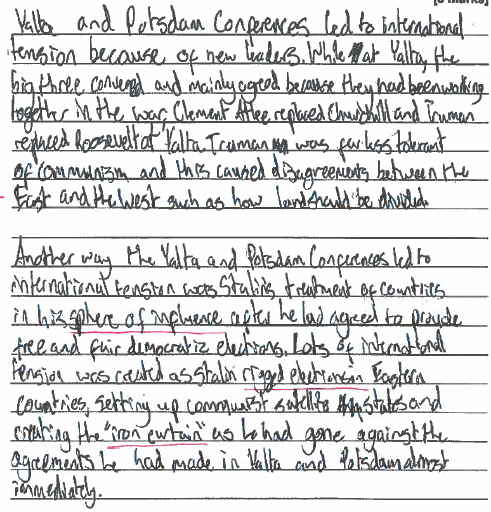 Yalta and Potsdam Conferences led to international
tension because of new leaders. While at Yalta, the
big three convened and mainly agreed because they had been working
together in the war. Clement Atlee replaced Churchill and Truman
replaced Roosevelt at Yalta. Truman was far less tolerant
of communism and this caused disagreements between the
East and the West such as how land should be divided.
Another way the Yalta and Potsdam Conferences led to
international tension was Stalins treatment of countries
in his sphere of influence after he had agreed to provide
free and fair democratic elections. Lots of international
tension was created as Stalin rigged elections in Eastern
countries, setting up communist satellite states and
creating the "iron curtain" as he had gone against the
agreements he had made in Yalta and Potsdam almost
immediately.